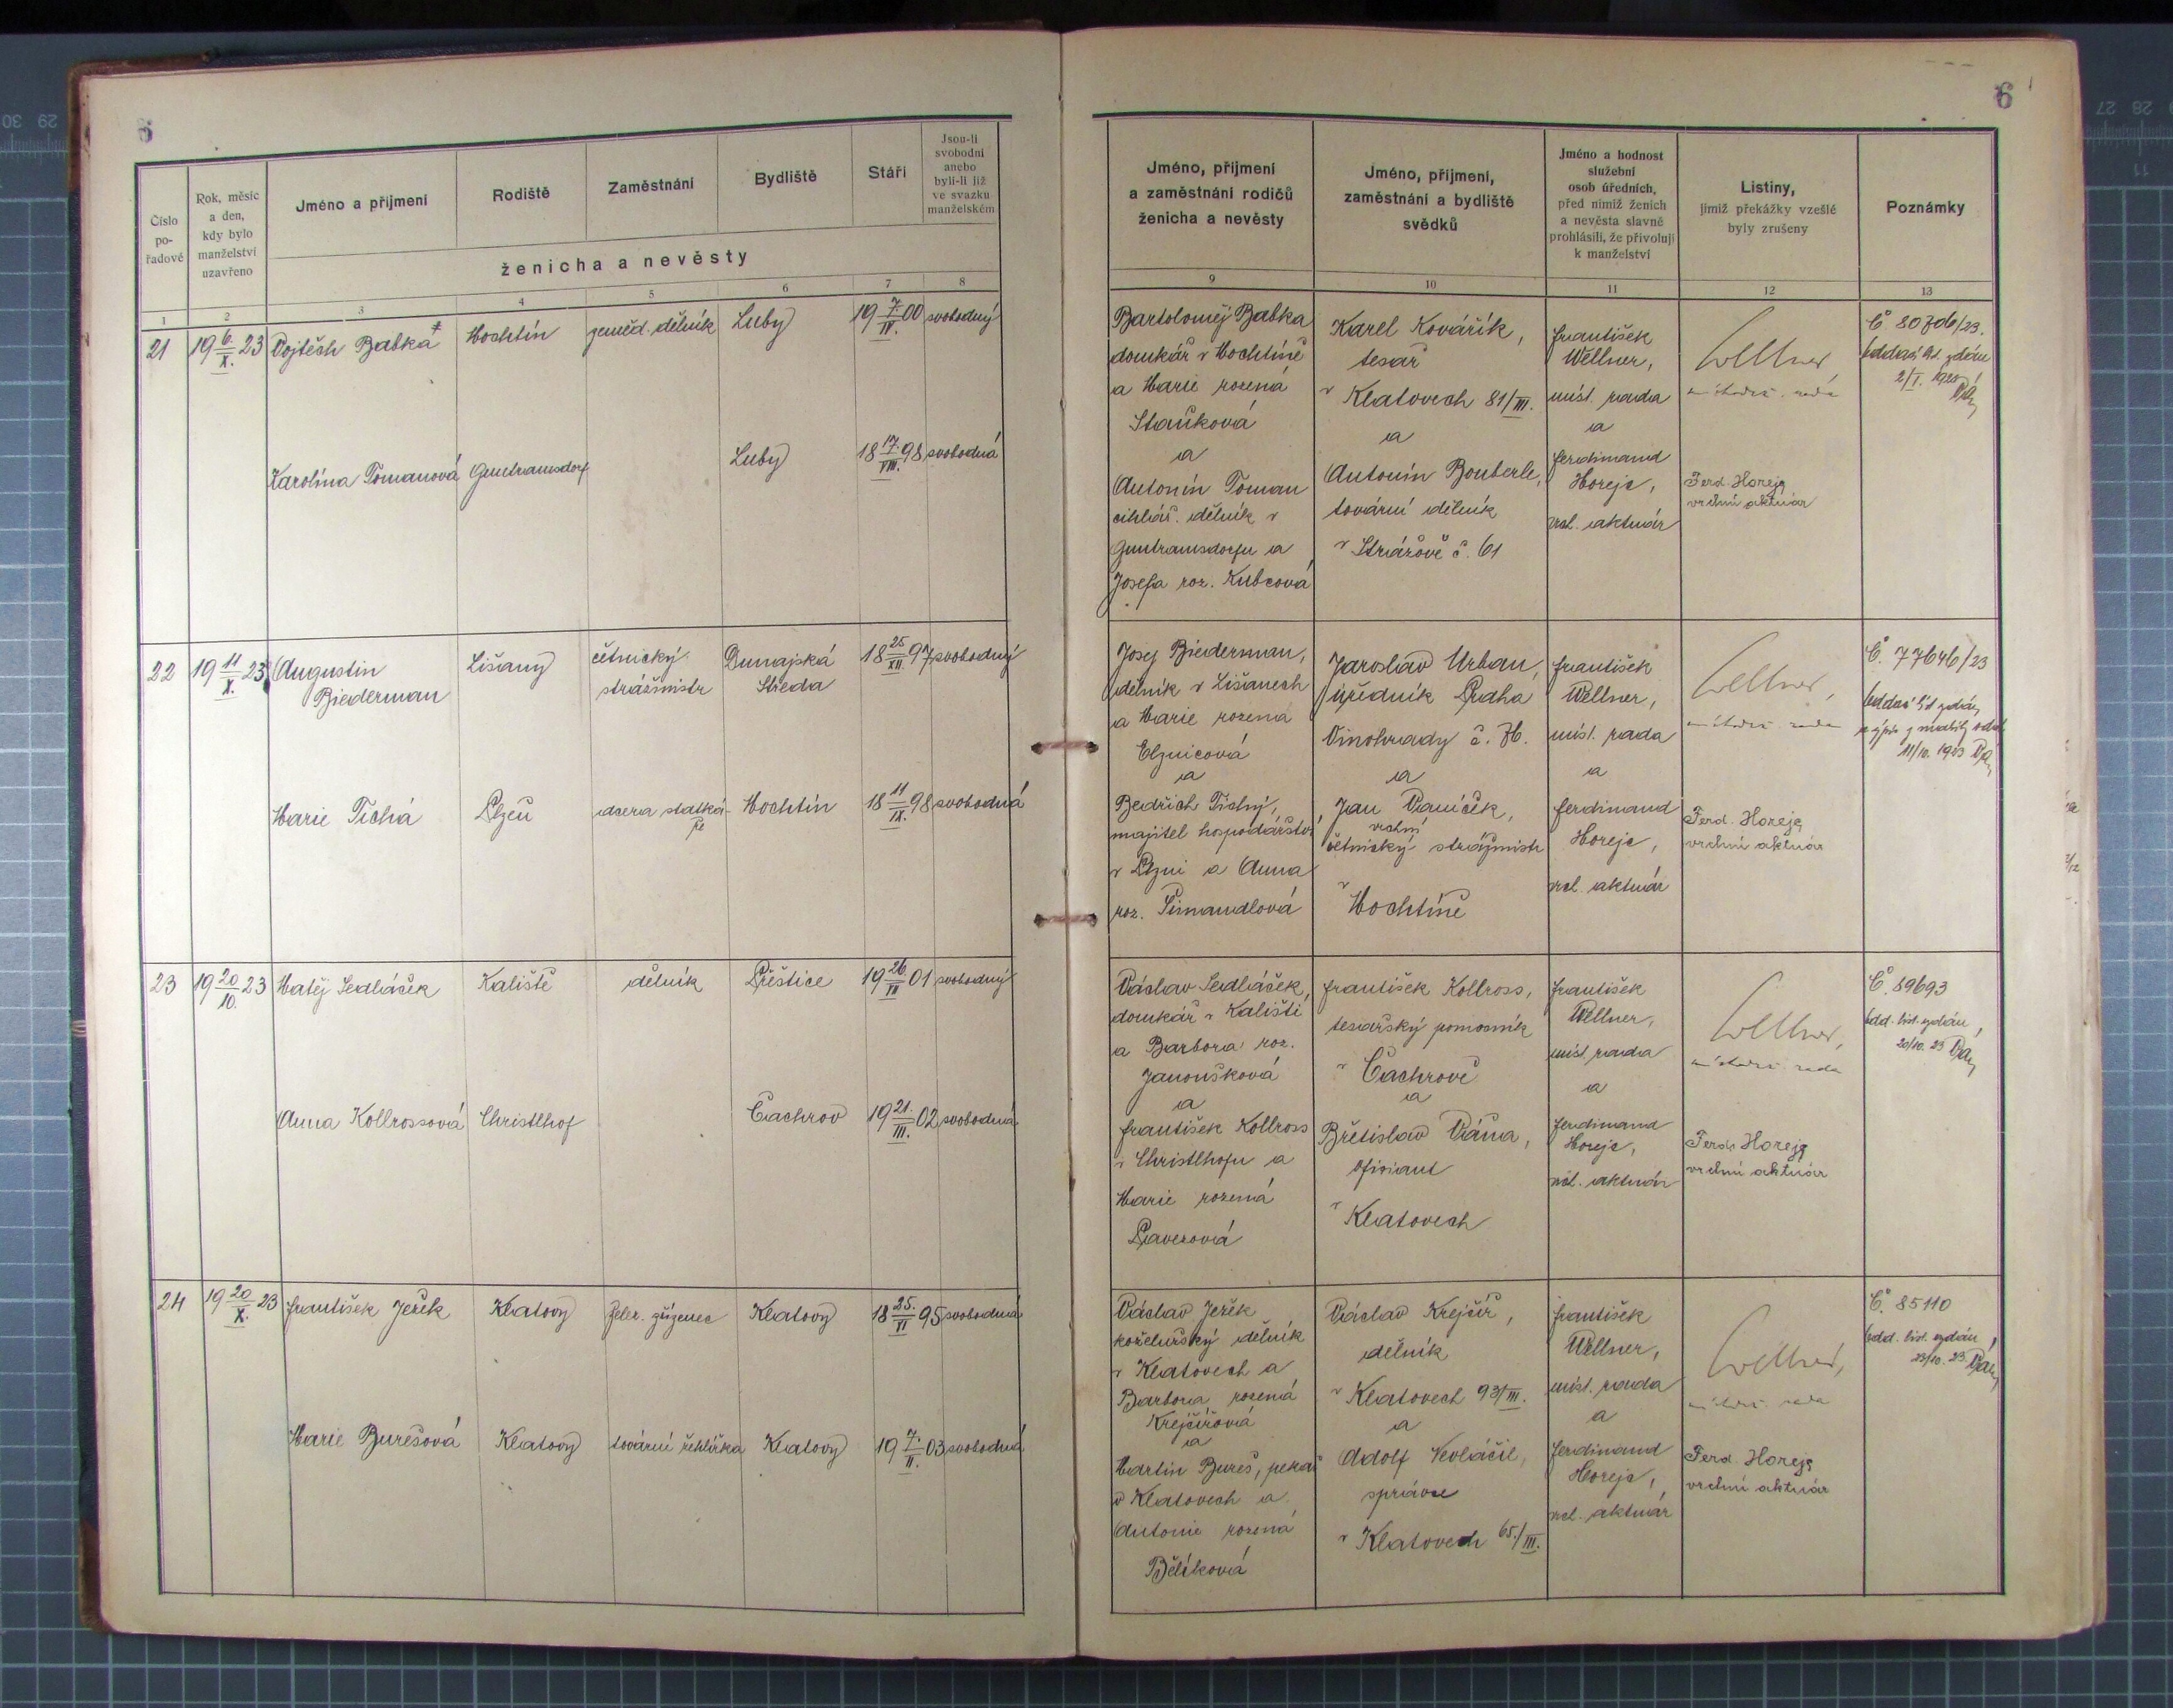 6
Číslo pořadové
Rok, měsíc a den, kdy bylo manželství uzavřeno
Jméno a příjmení
Rodiště
Zaměstnání
Bydliště
Stáří
Jsou-li svobodni anebo byli-li již ve svazku manželském
ženicha a nevěsty
1 2 3 4 5 6 7 8
21 19 6./X. 23 Vojtěch Babka Mochtín zeměd. dělník Luby 19 7/IV. 00 svobodný
Karolina Tomanová Guntramsdorf Luby 18 17./VIII. 98 svobodná
22 19 11/X. 23 Augustin Lišany četnický Dunajská 18 25/XII. 97 svobodný
Biederman strážmistr Středa
Marie Tichá Plzeň dcera statkáře Mochtín 18 11/IX. 98 svobodná
23 19 20/10. 23 Matěj Sedláček Kaliště dělník Přeštice 19 26./II 01 svobodný
Anna Kollrossová Christlhof Čachrov 19 21./III. 02 svobodná
24 19 20/X. 23 František Ježek Klatovy želez. zřízenec Klatovy 18 25./VI 95 svobodná
Marie Burešová Klatovy tovární žehlířka Klatovy 19 7./II. 03 svobodná
6
Jméno, příjmení
a zaměstnání rodičů
ženicha a nevěsty
Jméno, příjmení,
zaměstnání a bydliště
svědků
Jméno a hodnost
služební
osob úředních,
před nimiž ženich
a nevěsta slavně
prohlásili, že přivolují
k manželství
Listiny,
jimiž překážky vzešlé
byly zrušeny
Poznámky
9 10 11 12 13
Bartoloměj Babka
domkář v Mochtíně
a Marie rozená
Staňková
a
Antonín Toman
cihlář. dělník v
Guntramsdorfu a
Josefa roz. Kubcová
Karel Kovářík,
tesař
v Klatovech 81/III.
a
Antonín Bouberle,
tovární dělník
v Strážově č. 61
František
Wellner,
míst. rada
a
Ferdinand
Horejc,
vrch. aktuár
Wellner,
místodrž. rada
Ferd. Horejc
vrchní aktuár
Oddací list vydán
Josef Biederman,
dělník v Lišanech
a Marie rozená
Elznicová
a
Bedřich Tichý,
majitel hospodářství
v Plzni a Anna
roz. Šimandlová
Jaroslav Urban,
úředník Praha
Vinohrady
a
Jan Vaníček,
vrchní
četnický strážmistr
v
Mochtíně
František
Wellner,
míst. rada
a
Ferdinand
Horejc,
vrch. aktuár
Wellner,
místodrž. rada
Ferd. Horejc
vrchní aktuár
Č. 77646/23
Oddací list vydán
11/10. 1923
Václav Sedláček,
domkář v Kališti
a Barbora roz.
Janoušková
a
František Kollross
v Christlhofu a
Marie rozená
Paverová
František Kollross,
tesařský pomocník
v Čachrově
a
Břetislav Vána,
oficiant
v
Klatovech
František
Wellner,
míst. rada
a
Ferdinand
Horejc,
vrch. aktuár
Wellner,
místodrž. rada
Ferd. Horejc
vrchní aktuár
Č. 89693
Odd. list. vydán
20/10. 23
Václav Ježek
koželužský dělník
v Klatovech a
Barbora rozená
Krejčířová
a
Martin Bureš, pekař
v Klatovech a
Antonie rozená
Bělíková
Václav Krejčíř,
dělník
v Klatovech 93/III.
a
Adolf Nevláčil,
správce
v Klatovech 65./III.
František
Wellner,
míst. rada
a
Ferdinand
Horejc,
vrch. aktuár
Wellner,
místodrž. rada
Ferd. Horejc
vrchní aktuár
Č. 85110
Odd. list. vydán
23/10. 23